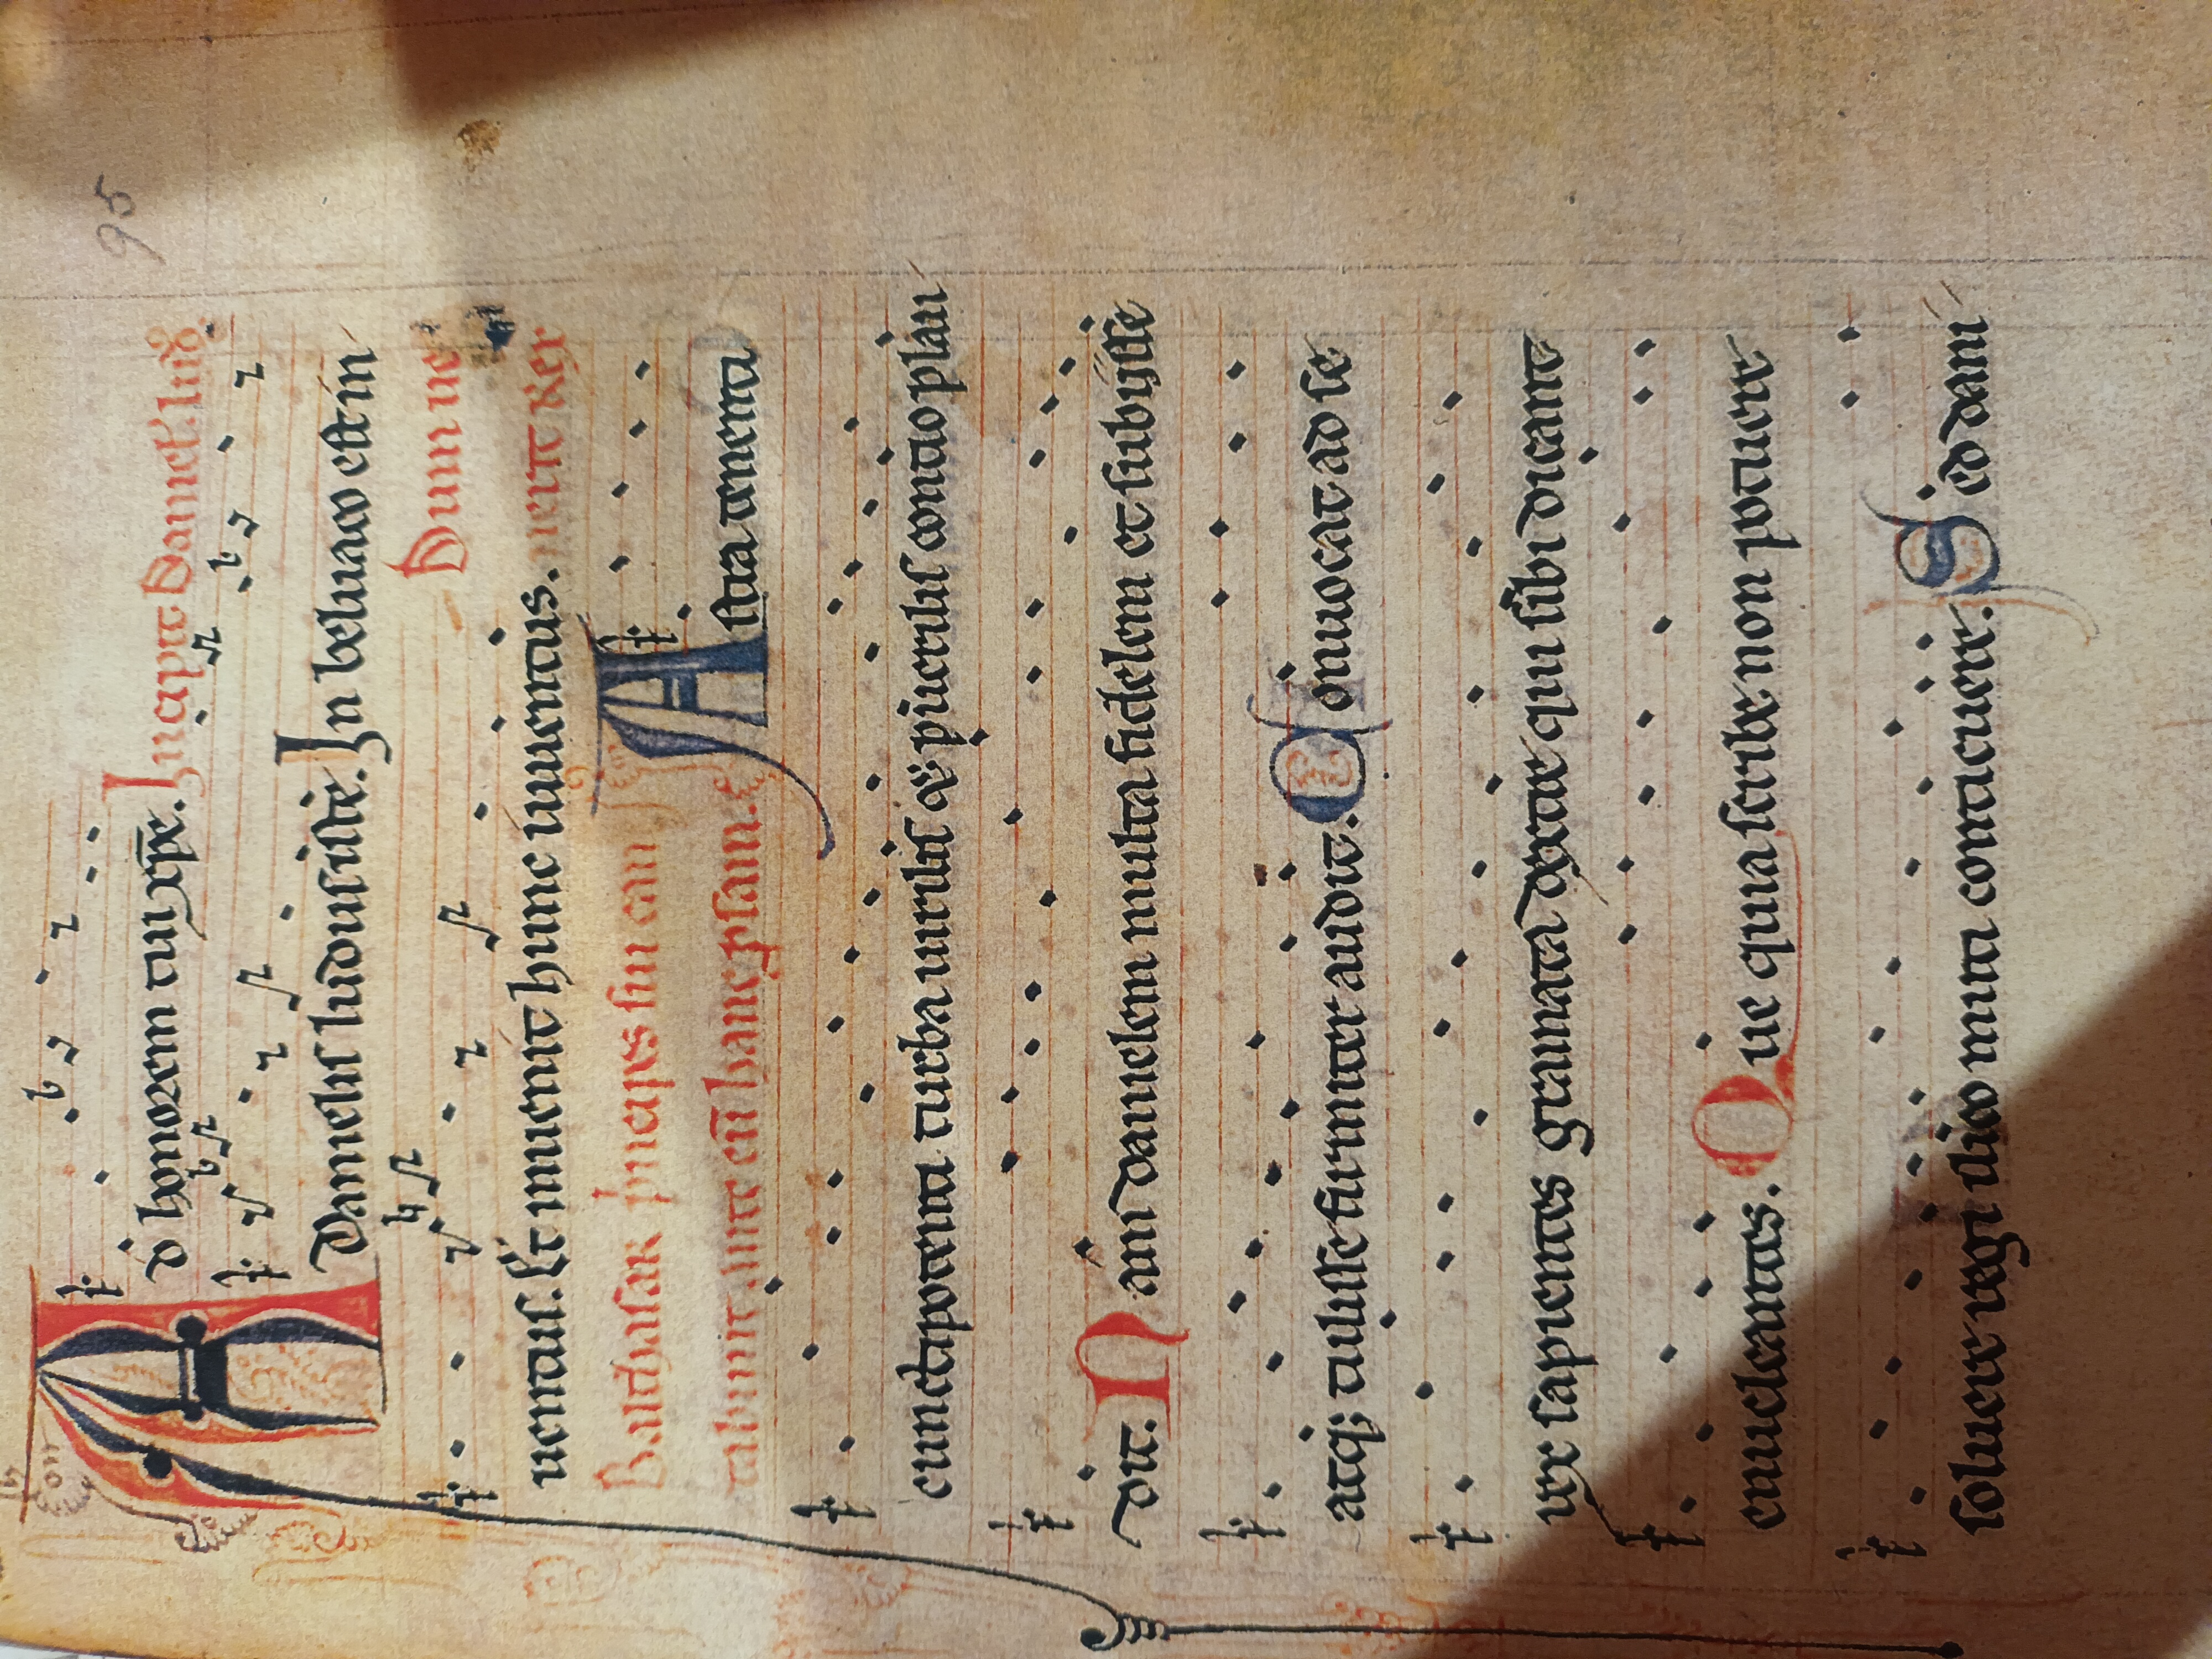 95
Ad honorem tui xp̄e. Incipit danieł. lud⁹.
Danielis ludus iste. In beluaco est in
Dum ue
uentus. Et inuenit hunc iuuentus. nerit rex
Balthasar prīcipes sui can
tabunt ante eū hanc prosam. Astra tenenti
cunctipotenti turba uirilis & puerilis contio plau
dit. Nam danielem multa fidelem et subijsse
atq; tulisse firmiter audit. Conuocat ad se
rex sapientes gramata dextre qui sibi dicant
enucleantes. Que quia scribe non potuere
soluere regi ilico muti conticuere. Sed dani